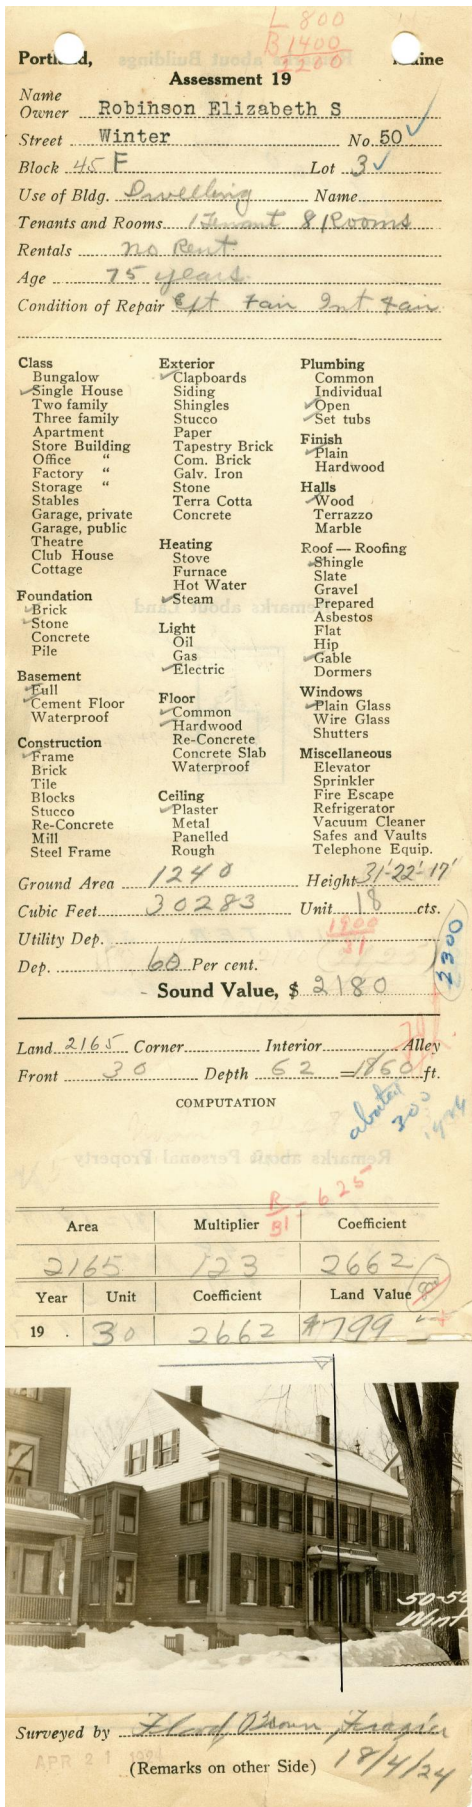 L 800
B 1400
2200
Portland, Maine
Assessment 19
Name
Owner Robinson Elizabeth S
Street Winter No. 50
Block 45 F Lot 3
Use of Bldg. Dwelling Name
Tenants and Rooms 1 Tenant 8 Rooms
Rentals no Rent
Age 75 years
Condition of Repair Ext Fair Int Fair
Class
Bungalow
Single House
Two family
Three family
Apartment
Store Building
Office "
Factory "
Storage "
Stables
Garage, private
Garage, public
Theatre
Club House
Cottage
Foundation
Brick
Stone
Concrete
Pile
Basement
Full
Cement Floor
Waterproof
Construction
Frame
Brick
Tile
Blocks
Stucco
Re-Concrete
Mill
Steel Frame
Exterior
Clapboards
Siding
Shingles
Stucco
Paper
Tapestry Brick
Com. Brick
Galv. Iron
Stone
Terra Cotta
Concrete
Heating
Stove
Furnace
Hot Water
Steam
Light
Oil
Gas
Electric
Floor
Common
Hardwood
Re-Concrete
Concrete Slab
Waterproof
Ceiling
Plaster
Metal
Panelled
Rough
Plumbing
Common
Individual
Open
Set tubs
Finish
Plain
Hardwood
Halls
Wood
Terrazzo
Marble
Roof — Roofing
Shingle
Slate
Gravel
Prepared
Asbestos
Flat
Hip
Gable
Dormers
Windows
Plain Glass
Wire Glass
Shutters
Miscellaneous
Elevator
Sprinkler
Fire Escape
Refrigerator
Vacuum Cleaner
Safes and Vaults
Telephone Equip.
Ground Area 1240 Height 31'-22'-17'
Cubic Feet 30283 Unit 18 cts.
Utility Dep. 1900
31
Dep. 60 Per cent.
2300
Sound Value, $ 2180
Land 2165 Corner Interior Alley
Front 30 Depth 62 = 1860 ft.
COMPUTATION
abated
300
1924
R
B1 - 625
Area Multiplier Coefficient
2165 123 2662
Year Unit Coefficient Land Value
19 . 30 2662 $799
50-52
Wint
Surveyed by Flood, Brown, Frazier
APR 21 1924
(Remarks on other Side) 18/4/24